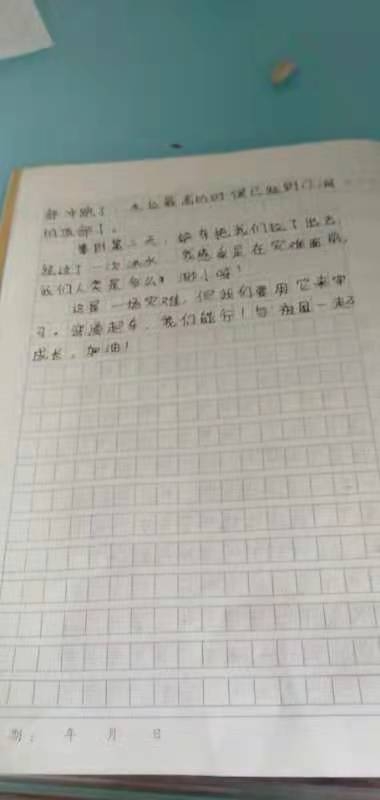 都冲跑了，水位最高的时候已经到了河
的顶部了。
事到第二天，铲车把我们拉了出去，
经过了一次洪水，我感觉是在灾难面前，
我们人类是多么渺小呀！
这是一场灾难，但我们要用它来学
习。站起来，我们能行！与祖国一起
成长，加油！
期： 年 月 日